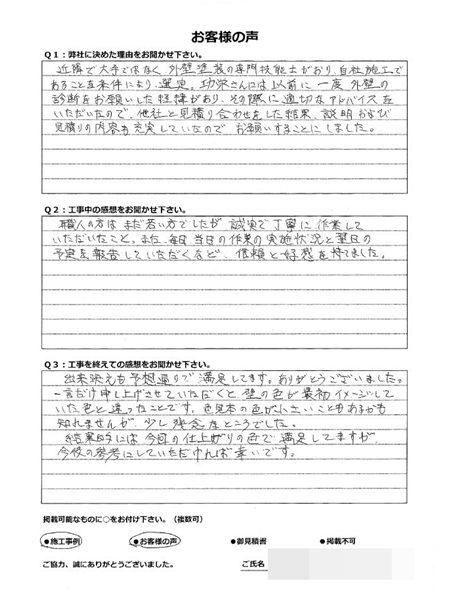 お客様の声
Q1：弊社に決めた理由をお聞かせ下さい。
近隣で大手ではなく、外壁塗装の専門技能士がおり、自社施工で
あることを条件により、選定。功栄さんには以前に一度外壁の
診断をお願いした経緯があり、その際に適切なアドバイスを
いただいたので、他社と見積り合わせをした結果、説明および
見積りの内容も充実していたので お願いすることにしました。
Q2：工事中の感想をお聞かせ下さい。
職人の方は まだ若い方でしたが 誠実で丁寧に作業して
いただいたこと。また、毎日 当日の作業の実施状況と翌日の
予定を報告していただくなど、信頼と好感を持てました。
Q3：工事を終えての感想をお聞かせ下さい。
出来映えも予想通りで満足してます。ありがとうございました。
一言だけ申し上げさせていただくと 壁の色が最初イメージして
いた色と違ったことです。色見本の色が小さいこともあるかも
知れませんが、少し残念なところでした。
結果的には 今回の仕上がりの色で満足してますが
今後の参考にしていただければ幸いです。
掲載可能なものに○をお付け下さい。（複数可）
●施工事例 ●お客様の声 ●御見積書 ●掲載不可
ご協力、誠にありがとうございました。 ご氏名